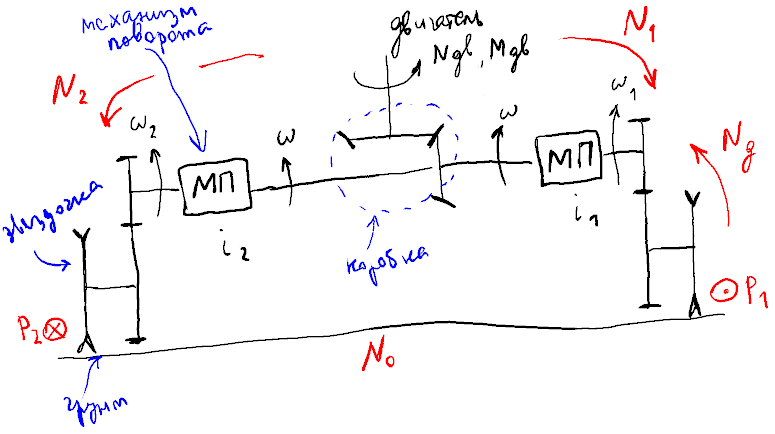 механизм
поворота
двигатель
Nдв, Mдв
N₁
N₂
ω₂
ω
ω
ω₁
Nд
МП
МП
звёздочка
i₂
i₁
коробка
P₂
P₁
N₀
грунт